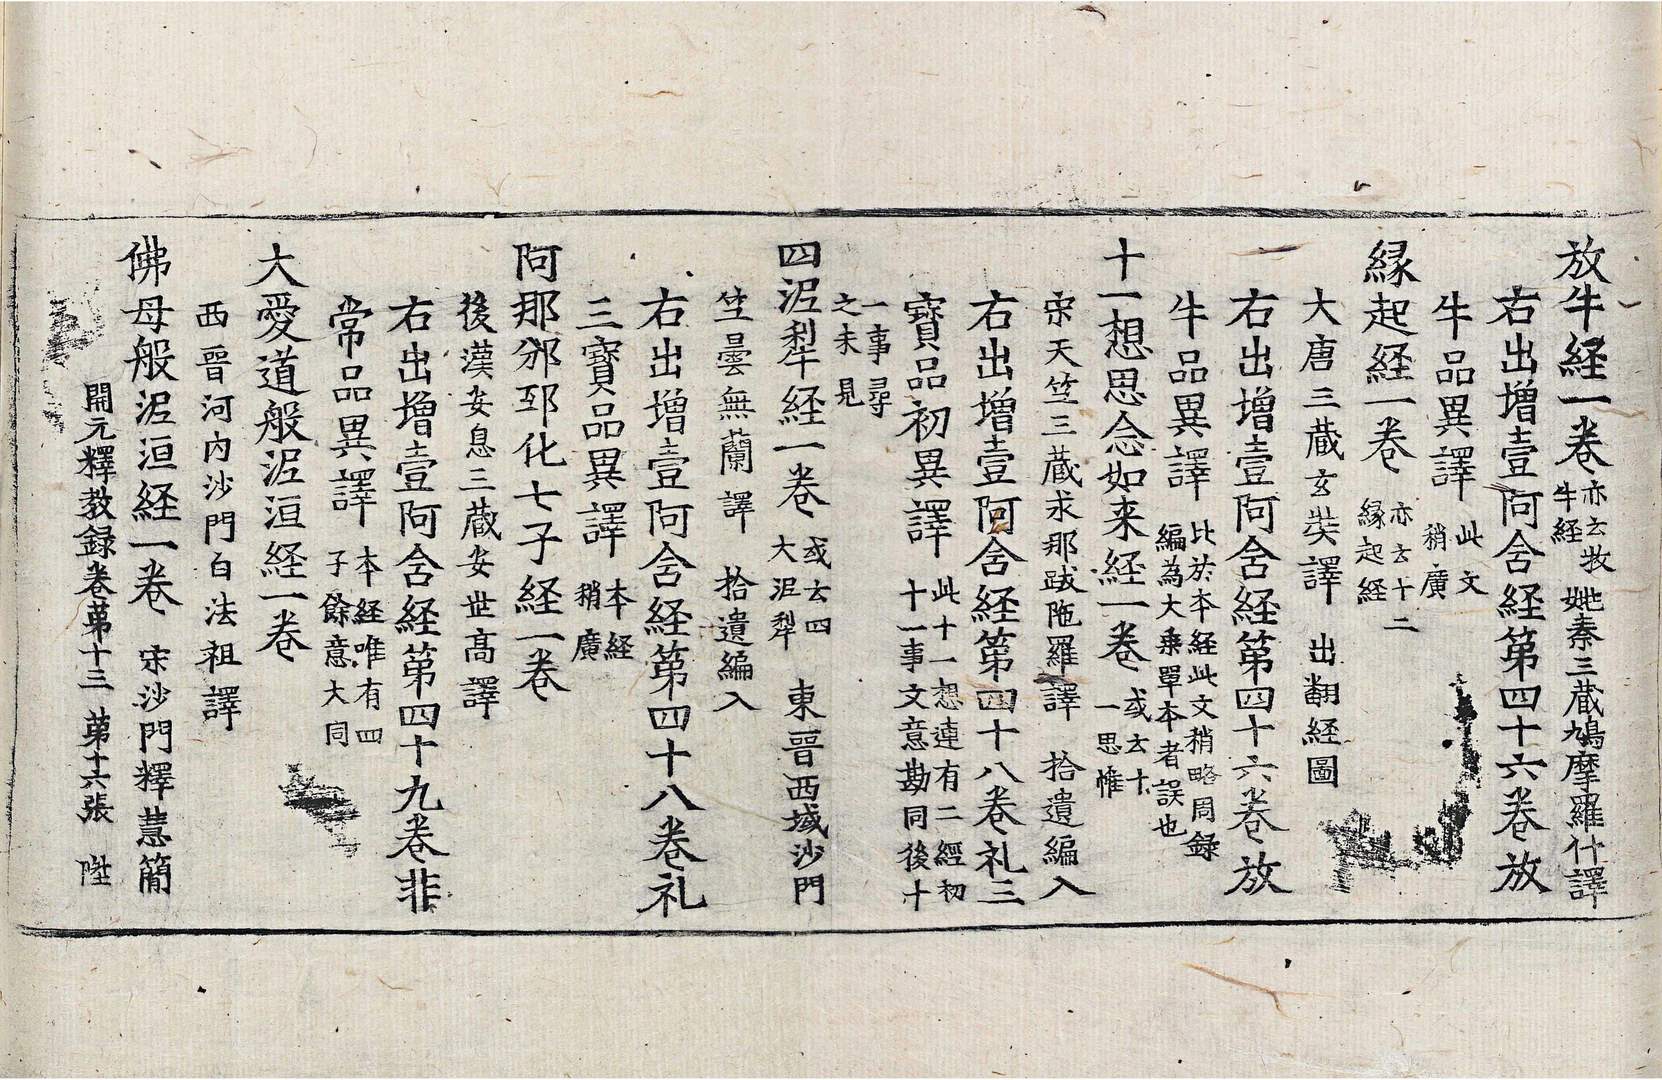 放牛経一卷 亦云牧牛経 姚秦三蔵鳩摩羅什譯
右出增壹阿含経第四十六卷放
牛品異譯 此文稍廣
縁起経一卷 亦云十二縁起経
大唐三蔵玄奘譯 出翻経圖
右出增壹阿含経第四十六卷放
牛品異譯 比於本経此文稍略周録編為大乗單本者誤也
十一想思念如来経一卷 或云十一思惟
宋天竺三蔵求那跋陁羅譯 拾遺編入
右出增壹阿含経第四十八卷礼三
寶品初異譯 此十一想連有二經初十一事文意勘同後十
一事尋之未見
四泥犁経一卷 或云四大泥犁 東晉西域沙門
竺曇無蘭譯 拾遺編入
右出增壹阿含経第四十八卷礼
三寶品異譯 本経稍廣
阿那邠邸化七子経一卷
後漢安息三蔵安世髙譯
右出增壹阿含経第四十九卷非
常品異譯 本経唯有四子餘意大同
大愛道般泥洹経一卷
西晉河内沙門白法祖譯
佛母般泥洹経一卷 宋沙門釋慧簡
開元釋教録卷苐十三 苐十六張 陞